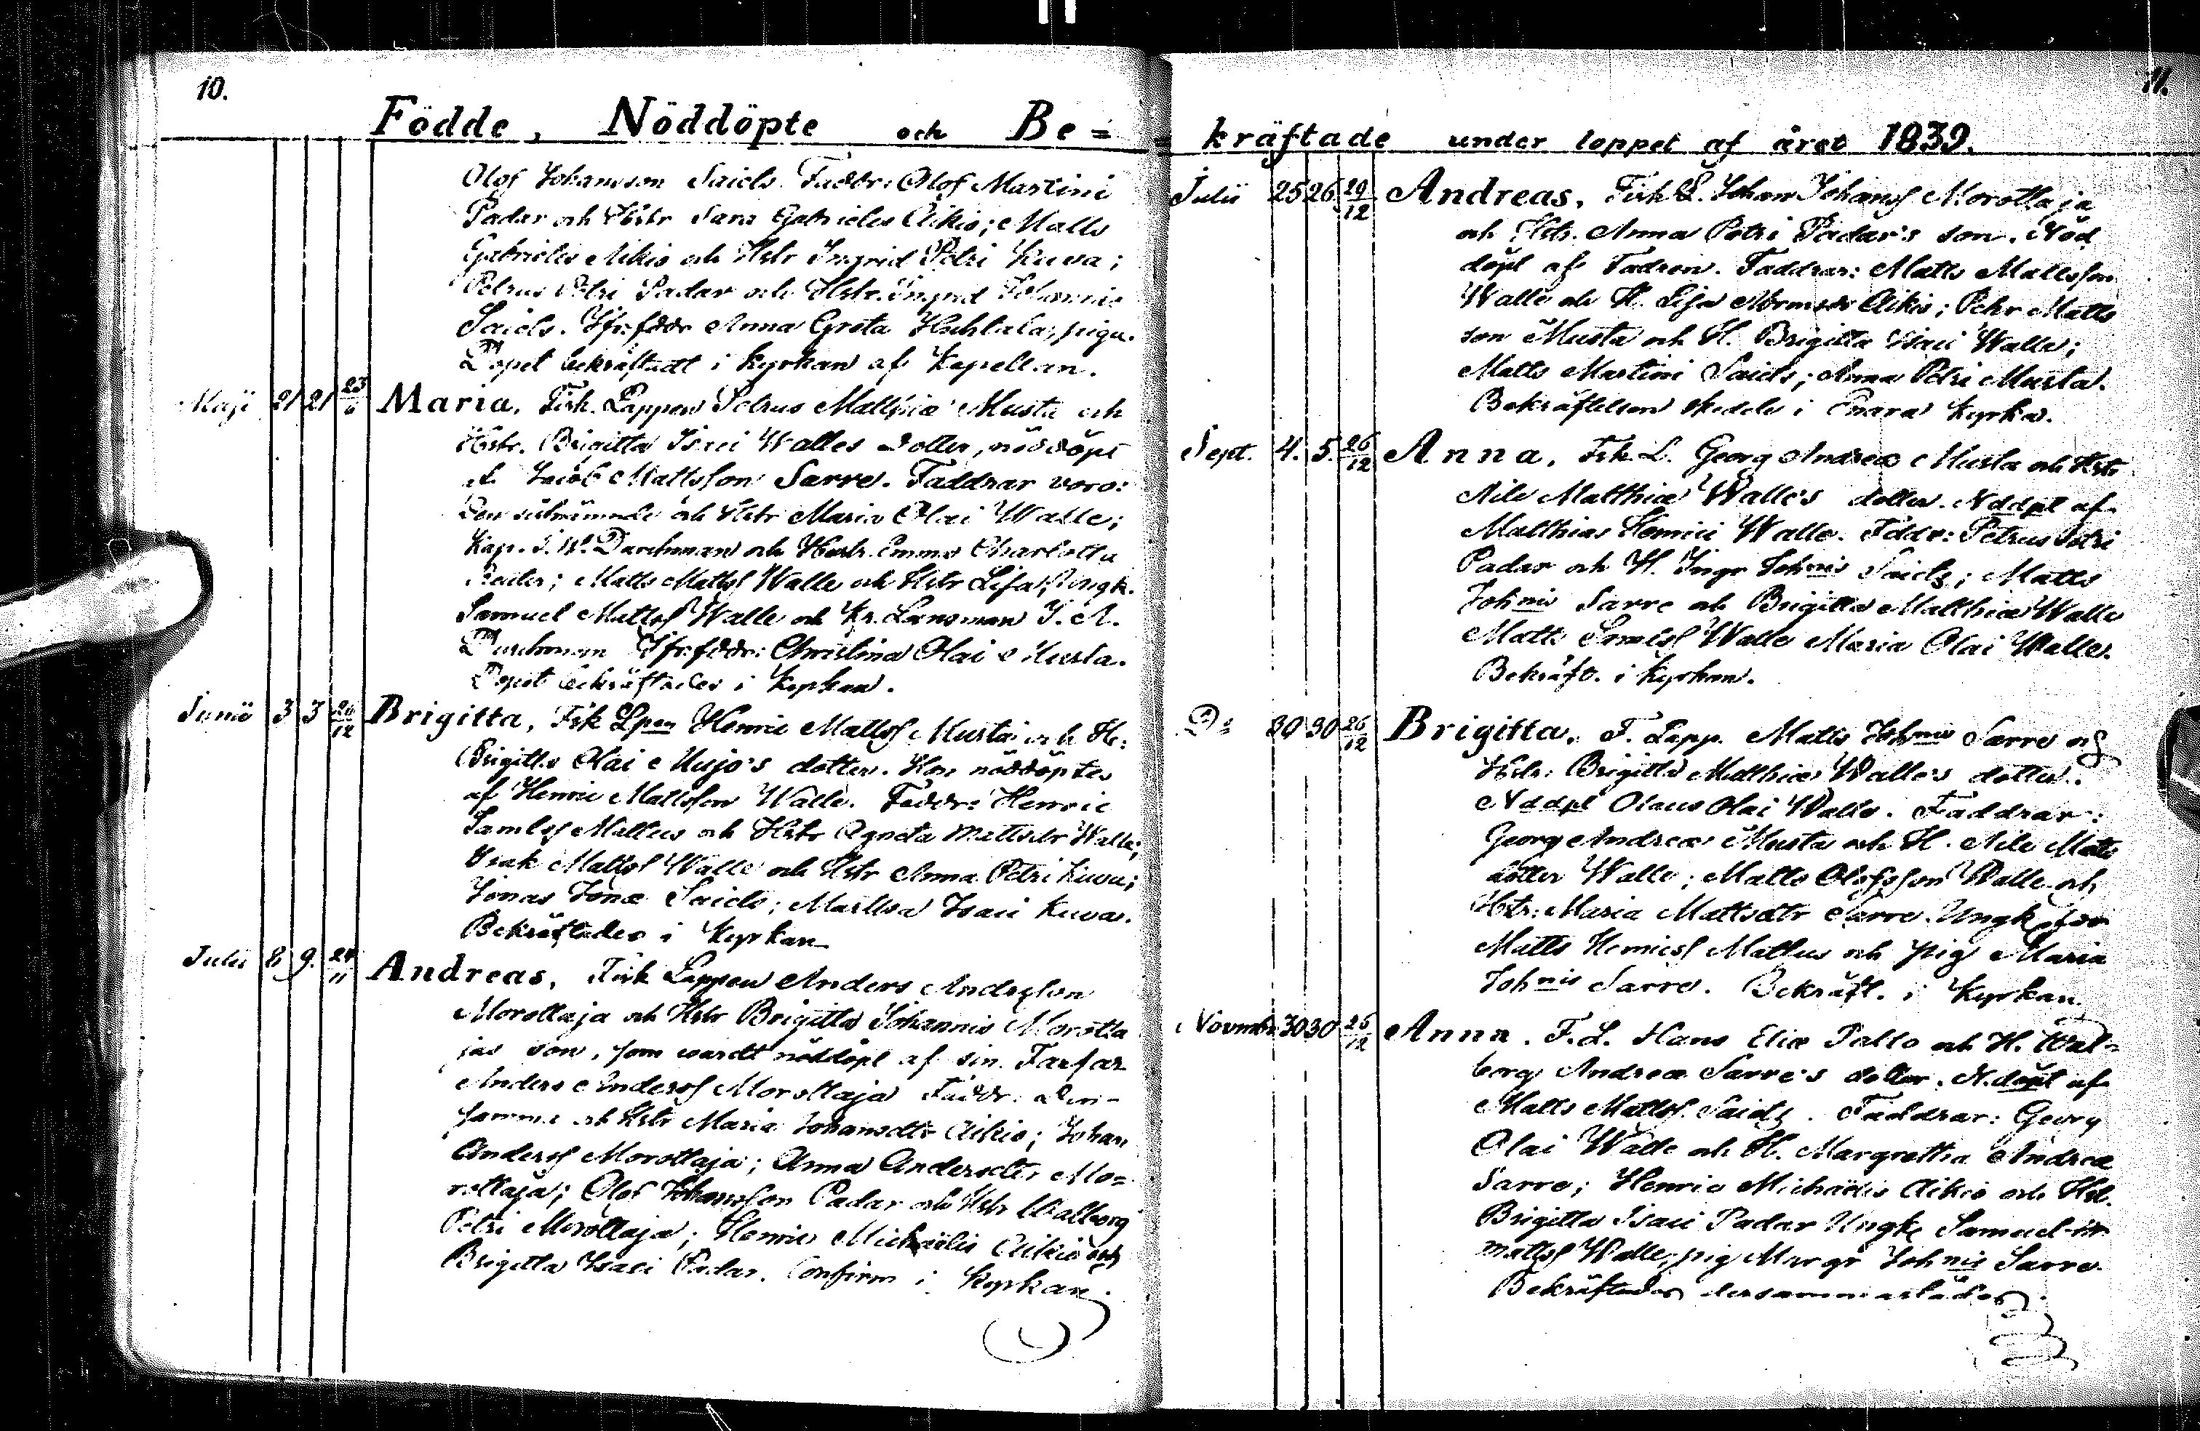 10.
Födde, Nöddöpte och Be=
Olof Johansson Saiels. Faddr: Olof Martini
Padar och Hstr Sara Gabrielis Aikio; Matts
Gabrielis Aikio och Hstr Ingrid Petri Kuva;
Petrus Petri Padar och Hstr. Ingrid Johannis
Saiels. Ofr. fddr Anna Greta Huhtala, piga.
Dopet bekräftadt i kyrkan af Kapellan.
Maji 21 21 23/6 Maria, Fisk. Lappen Petrus Matthiæ Musta och
Hstr. Brigitta Isaci Walles dotter, nöddöpt
af Jacob Mattsson Sarre. Faddrar voro:
Den sistnämnde och Hstr Maria Olai Walle;
Kap. J. W. Durchman och Hustr. Emma Charlotta
Matts Mattss Walle och Hstr Lisa; Ungk.
Samuel Mattss Walle och Kr. Länsman J. A.
Durchman Ofr. fddr: Christina Olai Musta.
Dopet bekräftades i Kyrkan.
Junii 3 3 26/12 Brigitta, Fisk Lpen Henric Mattss Musta och H:
Brigitta Olai Mujo's dotter. Hon nöddöptes
af Henric Mattsson Walle. Faddr: Henric
Samlss Mattus och Hstr Agneta Mattsdtr Walle;
Isak Mattss Walle och Hstr Anna Petri Kuva;
Jonas Jonæ Saiels; Martha Isaci Kuva.
Bekräftades i Kyrkan
Julii 8 9. 24/11 Andreas, Fisk Lappen Anders Andersson
Morottaja och Hstr Brigitta Johannis Morotta
jas son, som wardt nöddöpt af sin Farfar
Anders Anderss Morottaja Faddr: Den-
samme och Hstr Maria Johansdtr Aikio; Johan
Anderss Morottaja; Anna Andersdtr Mo=
rottaja; Olof Johansson Padar och Hstr Walborg
Petri Morottaja; Henric Michaelis Aikio och
Brigitta Isaci Padar. Confirm i Kyrkan.
11.
kräftade under loppet af året 1839.
Julii 25 26 29/12 Andreas, Fisk L. Johan Johanss Morottaja
och Hstr. Anna Petri Padar's son. Nöd
döpt af Fadren. Faddrar: Matts Mattsson
Walle och H. Lisa Aikio; Pehr Matts
son Musta och H. Brigitta Isaci Walle;
Matts Martini Saiels; Anna Petri Musta.
Bekräftelsen skedde i Enara Kyrka.
Sept. 4. 5. 26/12 Anna, Fisk L. Georg Andreæ Musta och Hstr
Aile Matthiæ Walle's dotter. Nddpt af
Matthias Henrici Walle. Fddr: Petrus Petri
Padar och H. Inga Johnis Saiels; Matts
Johnis Sarre och Brigitta Matthiæ Walle
Matts Samlss Walle Maria Olai Walle.
Bekräft. i Kyrkan.
Do 30 30 26/12 Brigitta, F. Lapp. Matts Johnis Sarre och
Hstr: Brigitta Matthiæ Walle's dotter.
Nddpt Olaus Olai Walle. Faddrar:
Georg Andreæ Musta och H. Aile Matts
dotter Walle; Matts Olofsson Walle och
Hstr: Maria Mattsdtr Sarre. Ungk. fdr
Matts Henricss Mattus och pig Maria
Johnis Sarre. Bekräft. i Kyrkan.
Novmbr 30 30 26/12 Anna. F. L. Hans Eliæ Palto och H. Wal=
borg Andreæ Sarre's dotter. N.döpt af
Matts Mattss. Saiels. Faddrar: Georg
Olai Walle och H. Margretha Andreæ
Sarre; Henric Michaelis Aikio och Hst.
Brigitta Isaci Padar Ungk. Samuel
Mattss Walle, pig Margr Johnis Sarre.
Bekräftades dersammastädes.